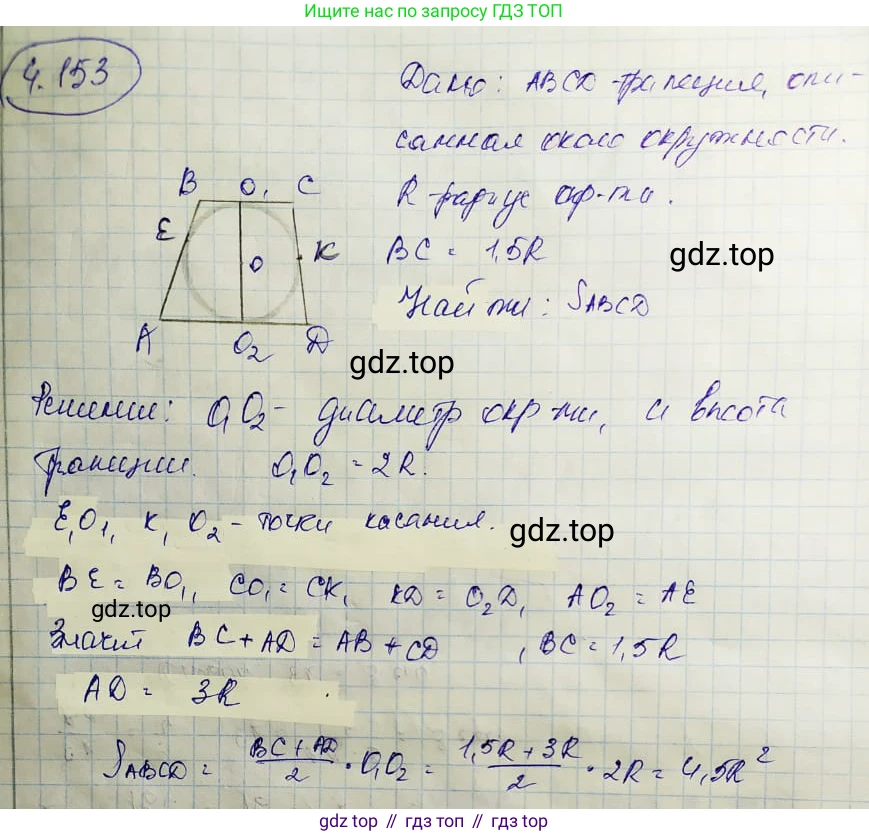 Больше решебников по запросу ГДЗ ТОП
4.153
Дано: ABCD-трапеция, опи-
санная около окружности.
R-радиус окр-ти.
BC = 1,5R
gdz.top
Найти: S_ABCD
B O₁ C
E
O
K
A O₂ D
gdz.top
Решение: O₁O₂ - диаметр окр-ти, и высота
трапеции. O₁O₂ = 2R.
E, O₁, K, O₂ - точки касания.
gdz.top
BE = BO₁, CO₁ = CK, KD = O₂D, AO₂ = AE
gdz.top
Значит BC + AD = AB + CD , BC = 1,5R
AD = 3R .
S_ABCD = (BC + AD)/2 · O₁O₂ = (1,5R + 3R)/2 · 2R = 4,5R²
gdz.top // gdz.top // gdz.top